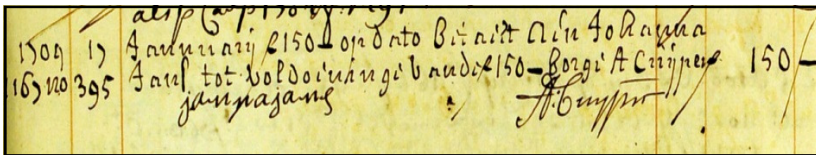 1709 17 Jannuarij ƒ150 - op dato Betailt Aen Johanna
1169 no 395 Jans tot voldoeninge van die ƒ150 - Borge A Cuijper 150 -
jannajans A: Cuyper